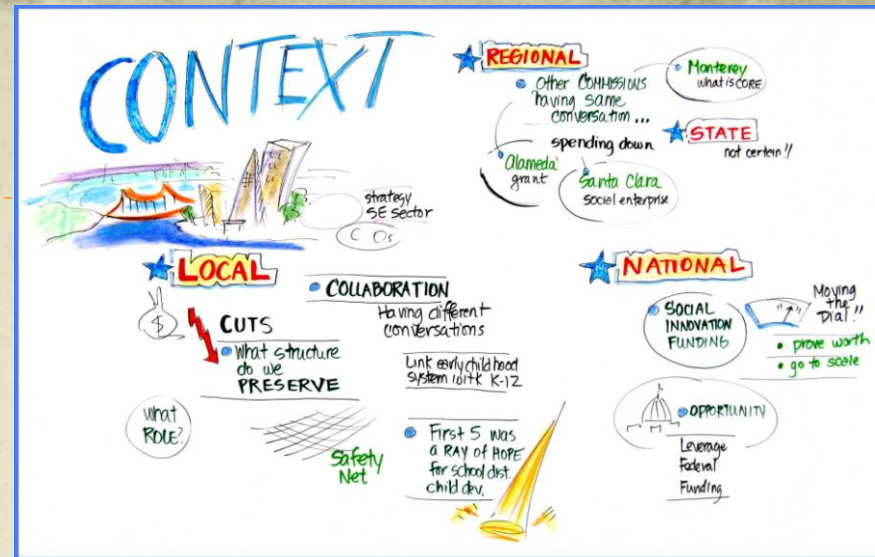 CONTEXT
strategy
SE sector
C Os
REGIONAL
Other COMMISSIONS
having same
conversation ...
Monterey
what is CORE
spending down
Alameda
grant
Santa Clara
social enterprise
STATE
not certain!!
LOCAL
$
CUTS
What structure
do we
PRESERVE
What
ROLE?
Safety
Net
COLLABORATION
Having different
conversations
Link early childhood
system with K-12
First 5 was
a RAY of HOPE
for school dist.
child dev.
NATIONAL
SOCIAL
INNOVATION
FUNDING
Moving
the
Dial!!
• prove worth
• go to scale
OPPORTUNITY
Leverage
Federal
Funding